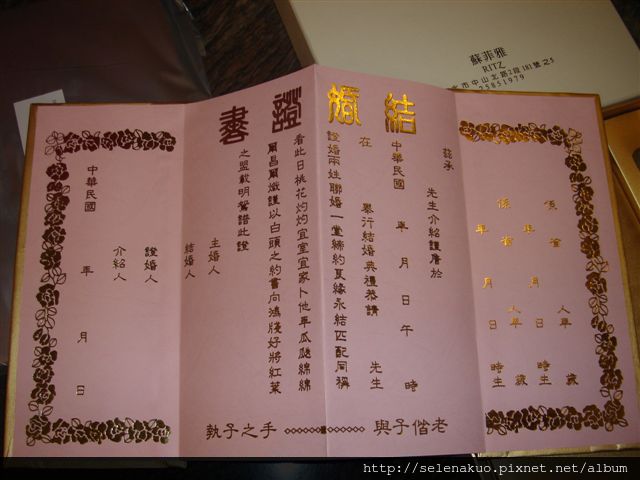 蘇菲雅
RITZ
市中山北路2段181號之5
25851979
結婚證書
係 省 人 年 歲
年 月 日 時生
係 省 人 年 歲
年 月 日 時生
茲承
先生介紹謹詹於
中華民國 年 月 日 午 時
在 舉行結婚典禮恭請 先生
證婚兩姓聯婚一堂締約良緣永結匹配同稱
看此日桃花灼灼宜室宜家卜他年瓜瓞綿綿
爾昌爾熾謹以白頭之約書向鴻箋好將紅葉
之盟載明鴛譜此證
主婚人
結婚人
證婚人
介紹人
中華民國 年 月 日
執子之手
與子偕老
http://selenakuo.pixnet.net/album